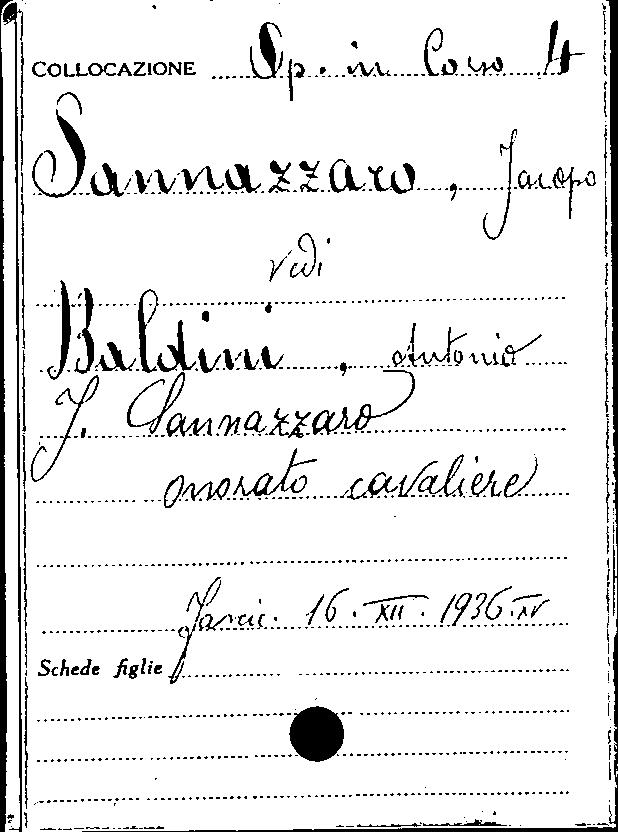 COLLOCAZIONE Op. in Corso 4
Sannazzaro, Jacopo
vedi
Baldini, Antonio
J. Sannazzaro
onorato cavaliere
Fascic. 16.XII.1936.XV
Schede figlie